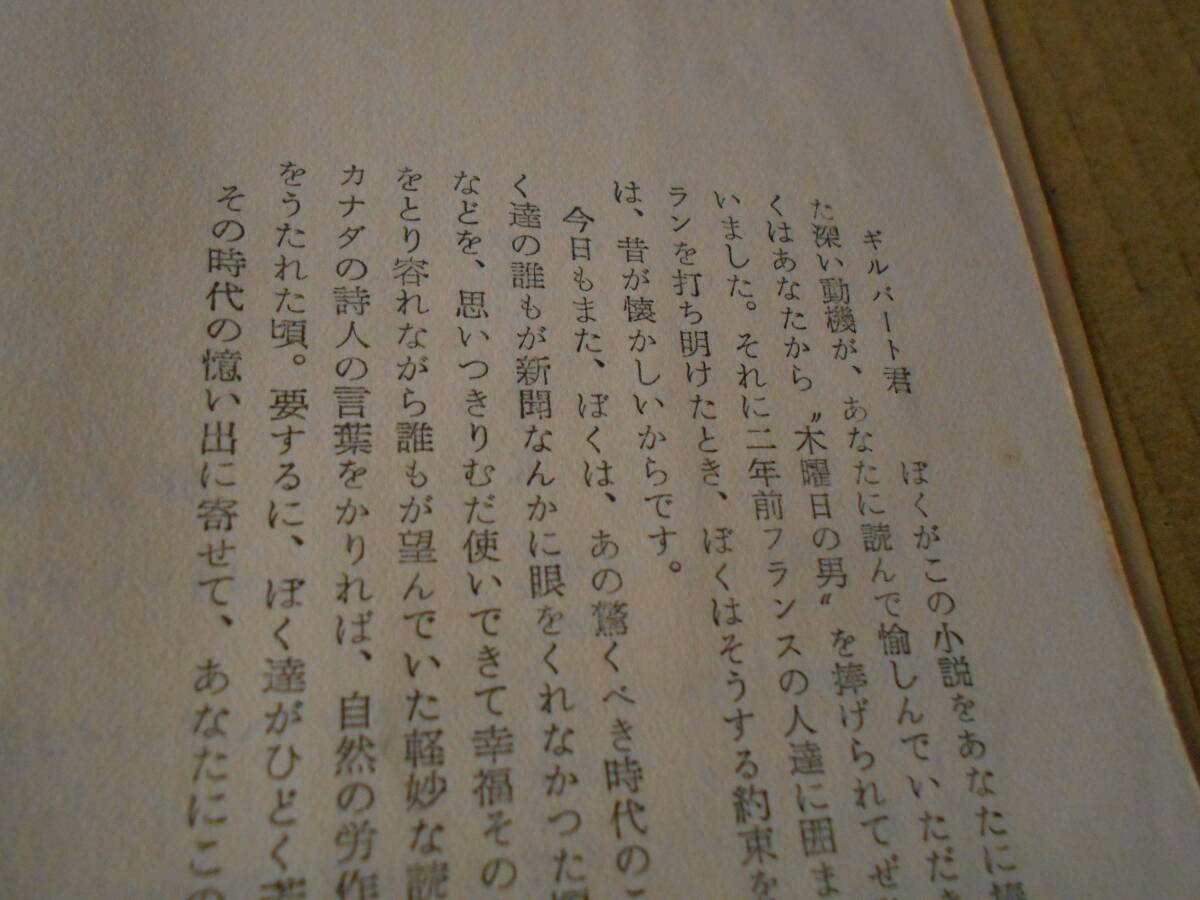 ギルバート君　ぼくがこの小説をあなたに
た深い動機が、あなたに読んで愉しんでいただき
くはあなたから〝木曜日の男〟を捧げられてぜ
いました。それに二年前フランスの人達に囲ま
ランを打ち明けたとき、ぼくはそうする約束を
は、昔が懐かしいからです。
今日もまた、ぼくは、あの驚くべき時代のこ
く達の誰もが新聞なんかに眼をくれなかった
などを、思いつきりむだ使いできて幸福その
をとり容れながら誰もが望んでいた軽妙な読
カナダの詩人の言葉をかりれば、自然の労作
をうたれた頃。要するに、ぼく達がひどく若
その時代の憶い出に寄せて、あなたにこの